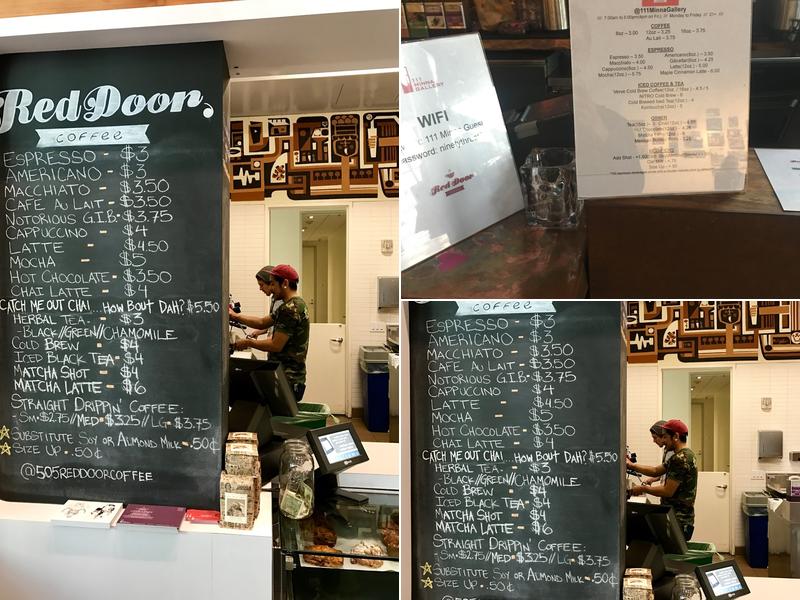 Red Door,
COFFEE
ESPRESSO - $3
AMERICANO - $3
MACCHIATO - $3.50
CAFE AU LAIT - $3.50
NOTORIOUS G.I.B. - $3.75
CAPPUCCINO - $4
LATTE - $4.50
MOCHA - $5
HOT CHOCOLATE - $3.50
CHAI LATTE - $4
CATCH ME OUT CHAI...HOW BOUT DAH? $5.50
HERBAL TEA - $3
- BLACK//GREEN//CHAMOMILE
COLD BREW - $4
ICED BLACK TEA - $4
MATCHA SHOT - $4
MATCHA LATTE - $6
STRAIGHT DRIPPIN' COFFEE:
- SM • $2.75//MED • $3.25//LG • $3.75
SUBSTITUTE SOY OR ALMOND MILK - .50¢
SIZE UP - .50¢
@505REDDOORCOFFEE
111
MINNA
GALLERY
WIFI
111 Minna Guest
password:
Red Door
@111MinnaGallery
COFFEE
8oz – 3.00 12oz – 3.25 16oz – 3.75
Au Lait – 3.75
ESPRESSO
Espresso – 3.50 Americano – 3.50
Macchiato – 4.00 Gibraltar – 4.25
Cappuccino – 4.50 Latte – 5.00
Mocha – 5.75 Maple Cinnamon Latte - 6.00
ICED COFFEE & TEA
Verve Cold Brew Coffee
NITRO Cold Brew - 6
Cold Brewed Iced Tea
Kombucha – 5
OTHER
Add Shot
COFFEE
ESPRESSO - $3
AMERICANO - $3
MACCHIATO - $3.50
CAFE AU LAIT - $3.50
NOTORIOUS G.I.B. - $3.75
CAPPUCCINO - $4
LATTE - $4.50
MOCHA - $5
HOT CHOCOLATE - $3.50
CHAI LATTE - $4
CATCH ME OUT CHAI...HOW BOUT DAH? $5.50
HERBAL TEA - $3
- BLACK//GREEN//CHAMOMILE
COLD BREW - $4
ICED BLACK TEA - $4
MATCHA SHOT - $4
MATCHA LATTE - $6
STRAIGHT DRIPPIN' COFFEE:
- SM • $2.75//MED • $3.25//LG • $3.75
SUBSTITUTE SOY OR ALMOND MILK - .50¢
SIZE UP - .50¢